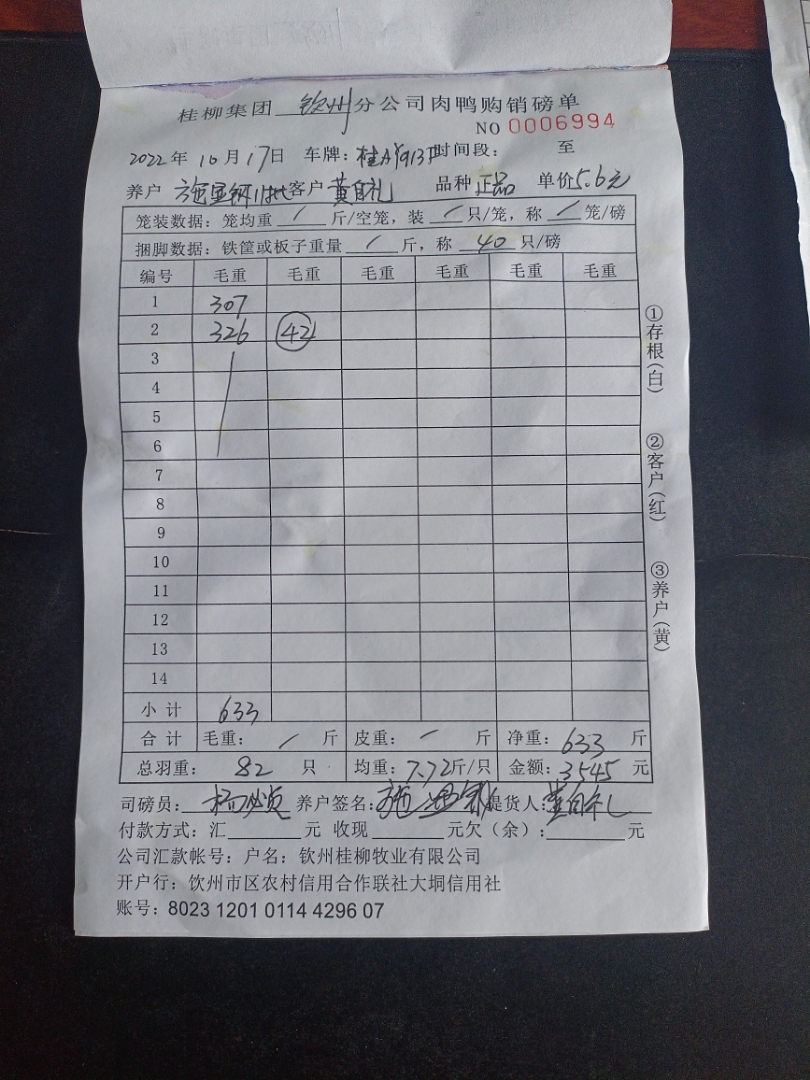 桂柳集团 钦州 分公司肉鸭购销磅单
NO 0006994
2022年 10月17日 车牌: 时间段: 至
养户 客户 黄自礼 品种 正品 单价5.6元
笼装数据: 笼均重 / 斤/空笼, 装 / 只/笼, 称 / 笼/磅
捆脚数据: 铁筐或板子重量 / 斤, 称 40 只/磅
编号 毛重 毛重 毛重 毛重 毛重 毛重
1 307
2 326 42
3
4
5
6
7
8
9
10
11
12
13
14
小计 633
合计 毛重: / 斤 皮重: / 斤 净重: 633 斤
总羽重: 82 只 均重: 7.72斤/只 金额: 3545 元
司磅员: 养户签名: 提货人: 黄自礼
付款方式: 汇 元 收现 元欠(余): 元
公司汇款帐号: 户名: 钦州桂柳牧业有限公司
开户行: 钦州市区农村信用合作联社大垌信用社
账号: 8023 1201 0114 4296 07
①存根(白)
②客户(红)
③养户(黄)